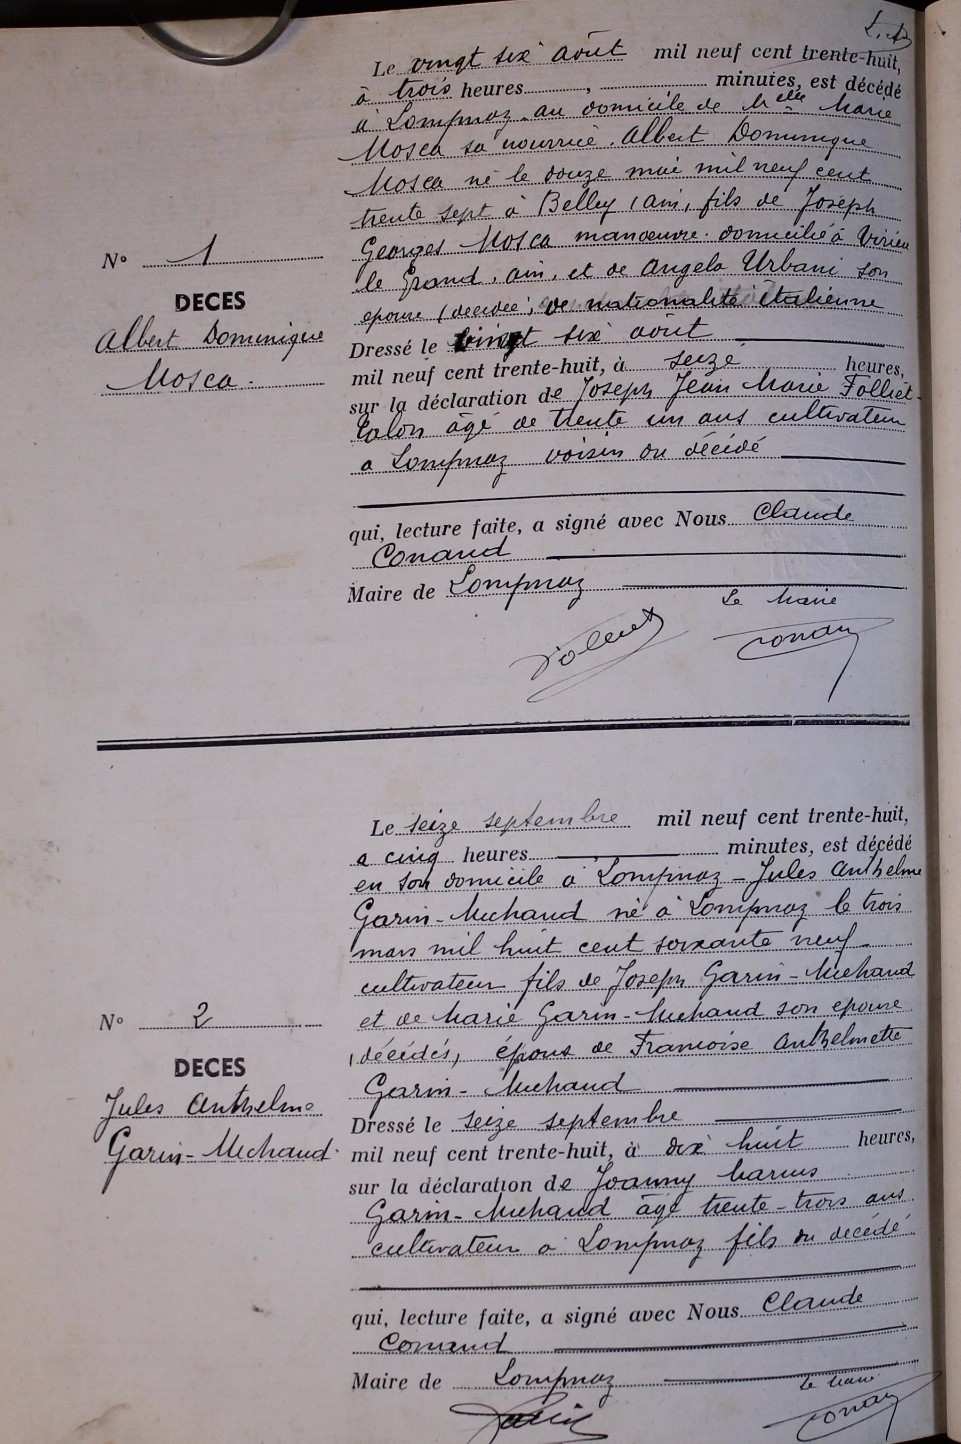 Le vingt six août mil neuf cent trente-huit,
à trois heures , minutes, est décédé
à Lompnaz au domicile de Melle Marie
Mosca sa nourrice. Albert Dominique
Mosca né le douze mai mil neuf cent
trente sept à Belley (ain, fils de Joseph
Georges Mosca manœuvre. domicilié à Virieu
le Grand, ain, et de Angela Urbani son
épouse (décédée, de nationalité italienne
Dressé le vingt six août
mil neuf cent trente-huit, à seize heures,
sur la déclaration de Joseph Jean Marie Folliet
âgé de trente un ans cultivateur
a Lompnaz voisin du décédé
qui, lecture faite, a signé avec Nous Claude
Conand
Maire de Lompnaz
Le Maire
Conand
N° 1
DECES
Albert Dominique
Mosca.
Le seize septembre mil neuf cent trente-huit,
a cinq heures minutes, est décédé
en son domicile à Lompnaz - Jules Anthelme
Garin-Michaud né à Lompnaz le trois
mars mil huit cent soixante neuf
cultivateur fils de Joseph Garin-Michaud
et de Marie Garin-Michaud son epouse
(décédés, époux de Francoise Anthelmette
Garin-Michaud
Dressé le seize septembre
mil neuf cent trente-huit, à dix huit heures,
sur la déclaration de Joanny Marius
Garin-Michaud âgé trente-trois ans
cultivateur à Lompnaz fils du décédé
qui, lecture faite, a signé avec Nous Claude
Conand
Maire de Lompnaz
Le Maire
Garin Conand
N° 2
DECES
Jules Anthelme
Garin-Michaud.